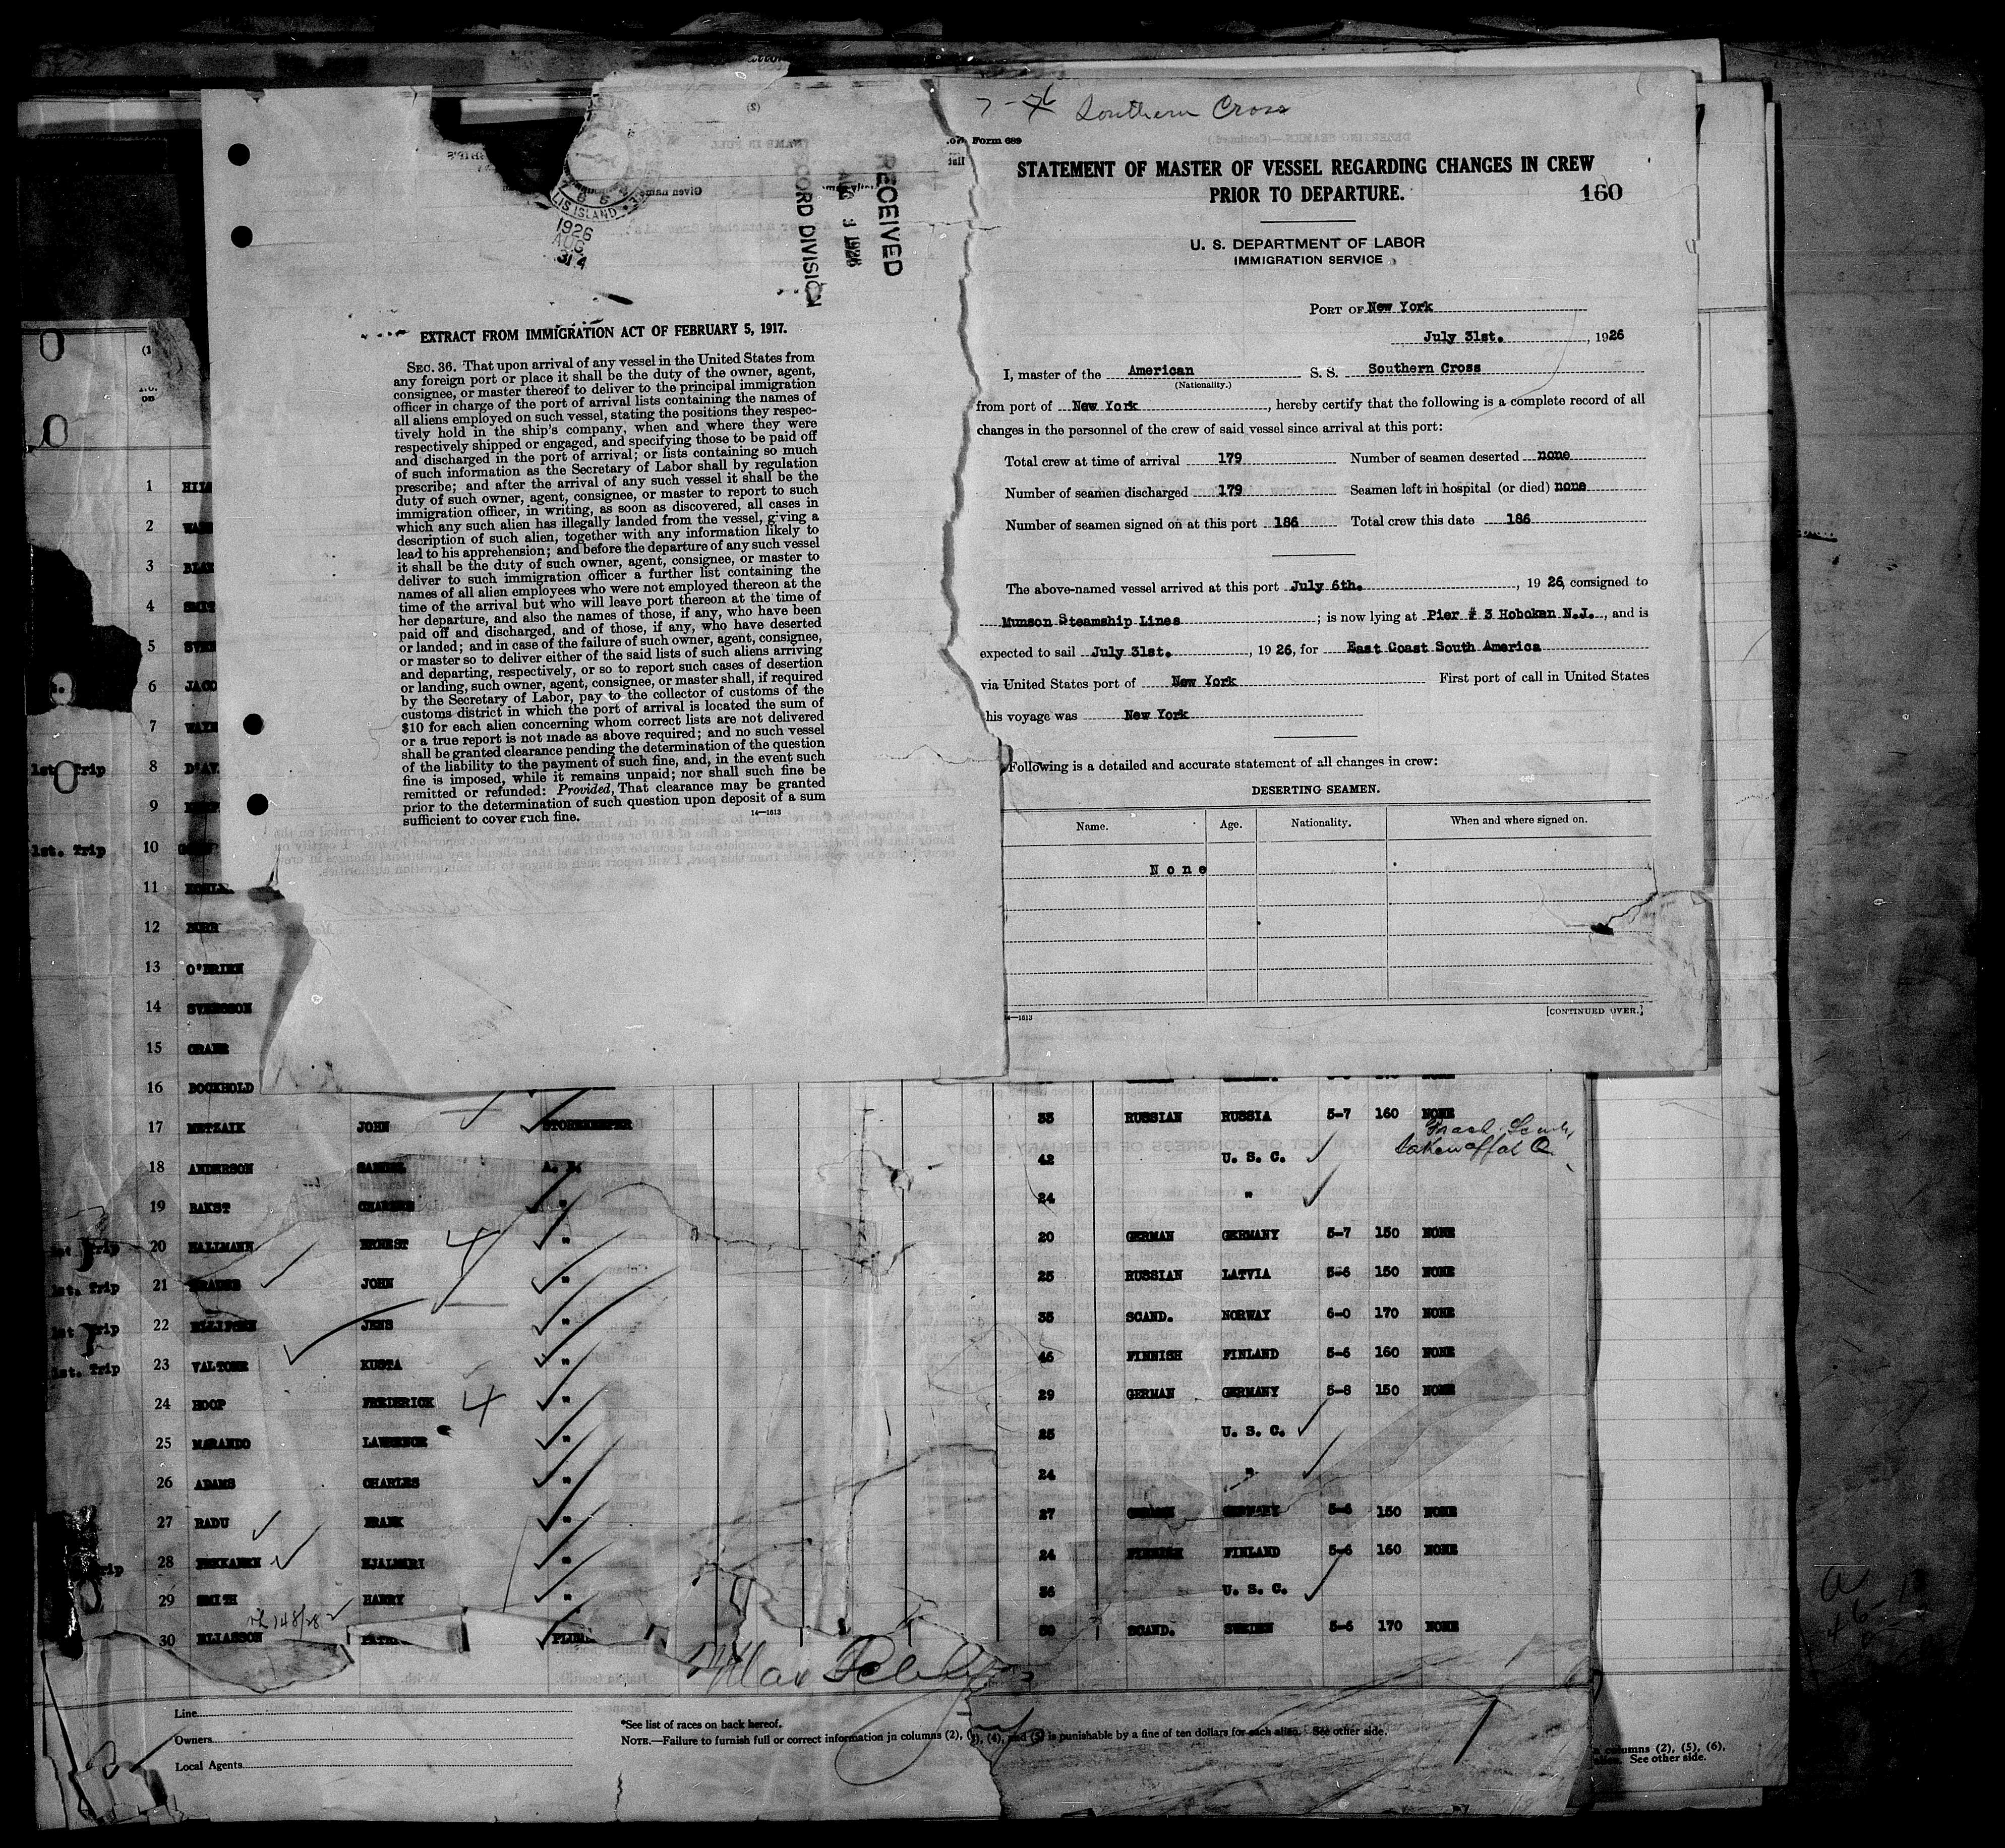 Southern Cross
Form 689
STATEMENT OF MASTER OF VESSEL REGARDING CHANGES IN CREW
PRIOR TO DEPARTURE.
160
U. S. DEPARTMENT OF LABOR
IMMIGRATION SERVICE
PORT OF New York
July 31st. , 1926
I, master of the American S. S. Southern Cross
(Nationality.)
from port of New York , hereby certify that the following is a complete record of all
changes in the personnel of the crew of said vessel since arrival at this port:
Total crew at time of arrival 179 Number of seamen deserted none
Number of seamen discharged 179 Seamen left in hospital (or died) none
Number of seamen signed on at this port 186 Total crew this date 186
The above-named vessel arrived at this port July 6th. , 1926, consigned to
Munson Steamship Lines ; is now lying at Pier # 3 Hoboken N.J. , and is
expected to sail July 31st. , 1926, for East Coast South America
via United States port of New York First port of call in United States
his voyage was New York
Following is a detailed and accurate statement of all changes in crew:
DESERTING SEAMEN.
Name. Age. Nationality. When and where signed on.
None
14—1613
[CONTINUED OVER.]
RECEIVED
AUG 3 1926
RECORD DIVISION
LIS ISLAND
1926
AUG
31 4
EXTRACT FROM IMMIGRATION ACT OF FEBRUARY 5, 1917.
SEC. 36. That upon arrival of any vessel in the United States from
any foreign port or place it shall be the duty of the owner, agent,
consignee, or master thereof to deliver to the principal immigration
officer in charge of the port of arrival lists containing the names of
all aliens employed on such vessel, stating the positions they respec-
tively hold in the ship's company, when and where they were
respectively shipped or engaged, and specifying those to be paid off
and discharged in the port of arrival; or lists containing so much
of such information as the Secretary of Labor shall by regulation
prescribe; and after the arrival of any such vessel it shall be the
duty of such owner, agent, consignee, or master to report to such
immigration officer, in writing, as soon as discovered, all cases in
which any such alien has illegally landed from the vessel, giving a
description of such alien, together with any information likely to
lead to his apprehension; and before the departure of any such vessel
it shall be the duty of such owner, agent, consignee, or master to
deliver to such immigration officer a further list containing the
names of all alien employees who were not employed thereon at the
time of the arrival but who will leave port thereon at the time of
her departure, and also the names of those, if any, who have been
paid off and discharged, and of those, if any, who have deserted
or landed; and in case of the failure of such owner, agent, consignee,
or master so to deliver either of the said lists of such aliens arriving
and departing, respectively, or so to report such cases of desertion
or landing, such owner, agent, consignee, or master shall, if required
by the Secretary of Labor, pay to the collector of customs of the
customs district in which the port of arrival is located the sum of
$10 for each alien concerning whom correct lists are not delivered
or a true report is not made as above required; and no such vessel
shall be granted clearance pending the determination of the question
of the liability to the payment of such fine, and, in the event such
fine is imposed, while it remains unpaid; nor shall such fine be
remitted or refunded: Provided, That clearance may be granted
prior to the determination of such question upon deposit of a sum
sufficient to cover such fine.
14—1613
1
2
3
4 SMIT
5 SVEN
6 JACO
7
1st Trip 8 D'AV
9
1st. Trip 10
11
12
13 O'BRIEN
14 SVENSSON
15
16 BOCKHOLD
17 METZAIK JOHN STOREKEEPER 33 RUSSIAN RUSSIA 5-7 160 NONE
18 ANDERSON SAMUEL A. B. 42 U. S. C.
19 BAKST CHARLES " 24 "
1st Trip 20 HALLMANN ERNEST 4 " 20 GERMAN GERMANY 5-7 150 NONE
1st. Trip 21 JOHN " 25 RUSSIAN LATVIA 5-6 150 NONE
1st Trip 22 ELLIFSEN JENS " 35 SCAND. NORWAY 6-0 170 NONE
1st. Trip 23 VALTONE KUSTA " 46 FINNISH FINLAND 5-6 160 NONE
24 HOOP FREDERICK 4 " 29 GERMAN GERMANY 5-8 150 NONE
25 MARANDO LAWRENCE " 25 U. S. C.
26 ADAMS CHARLES " 24 "
27 RADU FRANK " 27 GERMAN GERMANY 5-6 150 NONE
28 HJALMRI " 24 FINNISH FINLAND 5-6 160 NONE
29 SMITH HARRY " 36 U. S. C.
30 ELIASSON SCAND. SWEDEN 5-6 170 NONE
Line
Owners
Local Agents
*See list of races on back hereof.
NOTE.—Failure to furnish full or correct information in columns (2), (3), (4), and (5) is punishable by a fine of ten dollars for each alien. See other side.
columns (2), (5), (6),
alien. See other side.